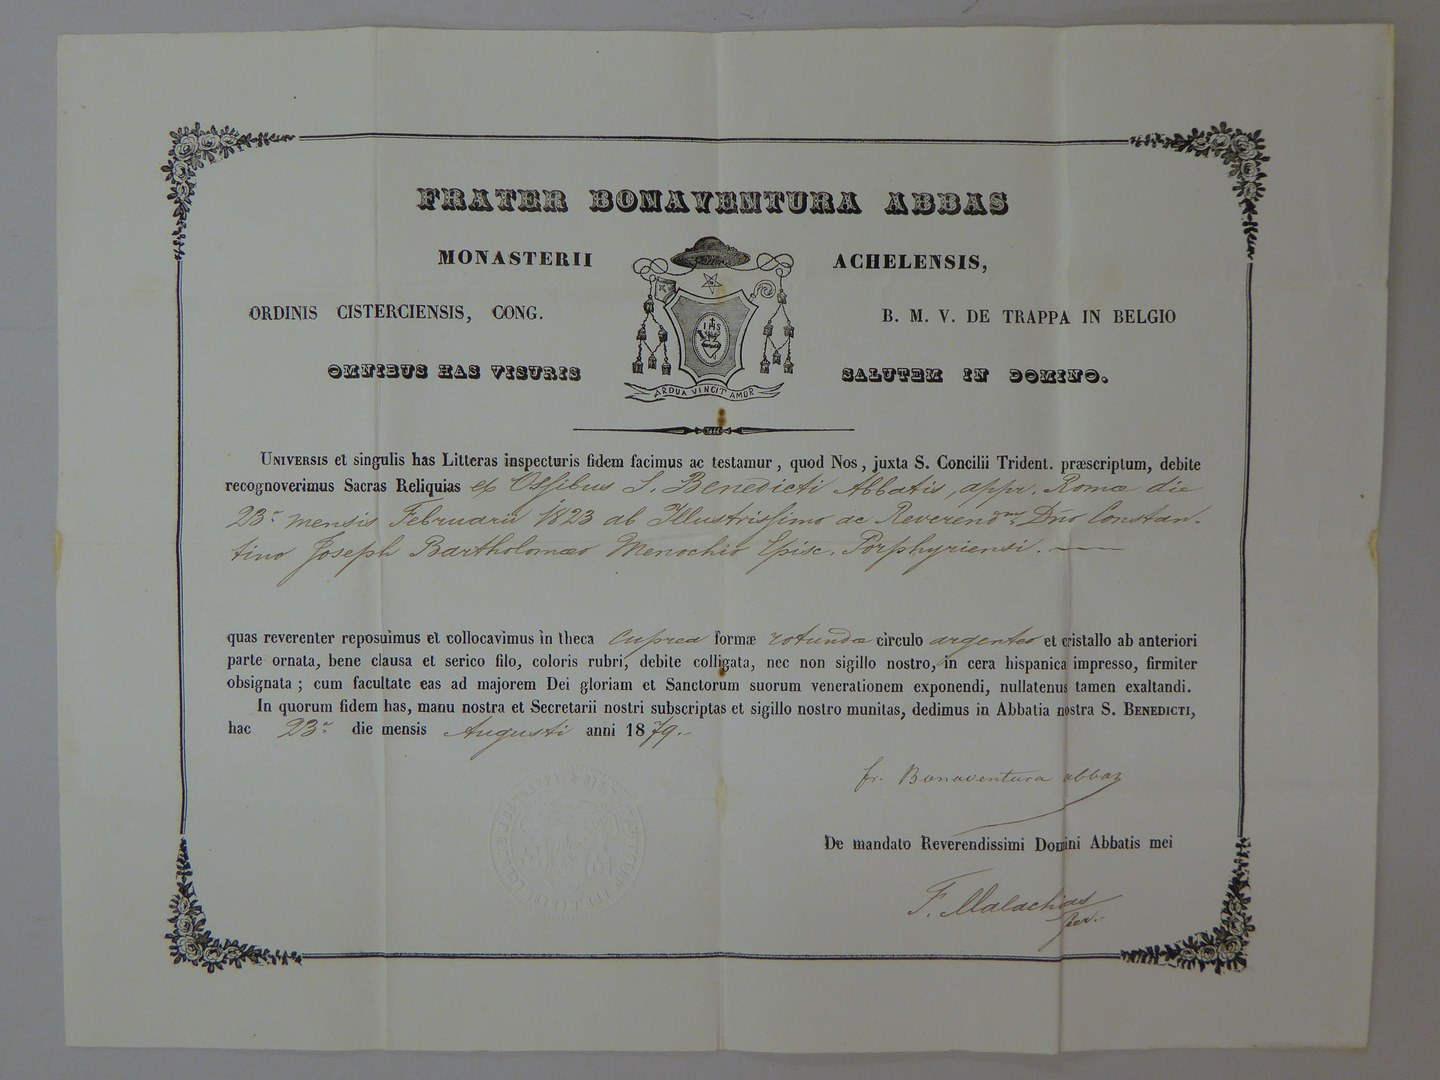 FRATER BONAVENTURA ABBAS
MONASTERII ACHELENSIS,
ORDINIS CISTERCIENSIS, CONG. B. M. V. DE TRAPPA IN BELGIO
IHS
OMNIBUS HAS VISURIS SALUTEM IN DOMINO.
ARDUA VINCIT AMOR
UNIVERSIS et singulis has Litteras inspecturis fidem facimus ac testamur, quod Nos, juxta S. Concilii Trident. præscriptum, debite
recognoverimus Sacras Reliquias ex Ossibus S. Benedicti Abbatis, appr. Romæ die
23ª mensis Februarii 1823 ab Illustrissimo ac Reverendmo Dño Constan-
tino Joseph Bartholomæo Menochio Episc. Porphyriensi.
quas reverenter reposuimus et collocavimus in theca cuprea formæ rotundæ circulo argenteo et cristallo ab anteriori
parte ornata, bene clausa et serico filo, coloris rubri, debite colligata, nec non sigillo nostro, in cera hispanica impresso, firmiter
obsignata; cum facultate eas ad majorem Dei gloriam et Sanctorum suorum venerationem exponendi, nullatenus tamen exaltandi.
In quorum fidem has, manu nostra et Secretarii nostri subscriptas et sigillo nostro munitas, dedimus in Abbatia nostra S. BENEDICTI,
hac 23ª die mensis Augusti anni 1879.-
fr. Bonaventura abbas
De mandato Reverendissimi Domini Abbatis mei
F. Malachias